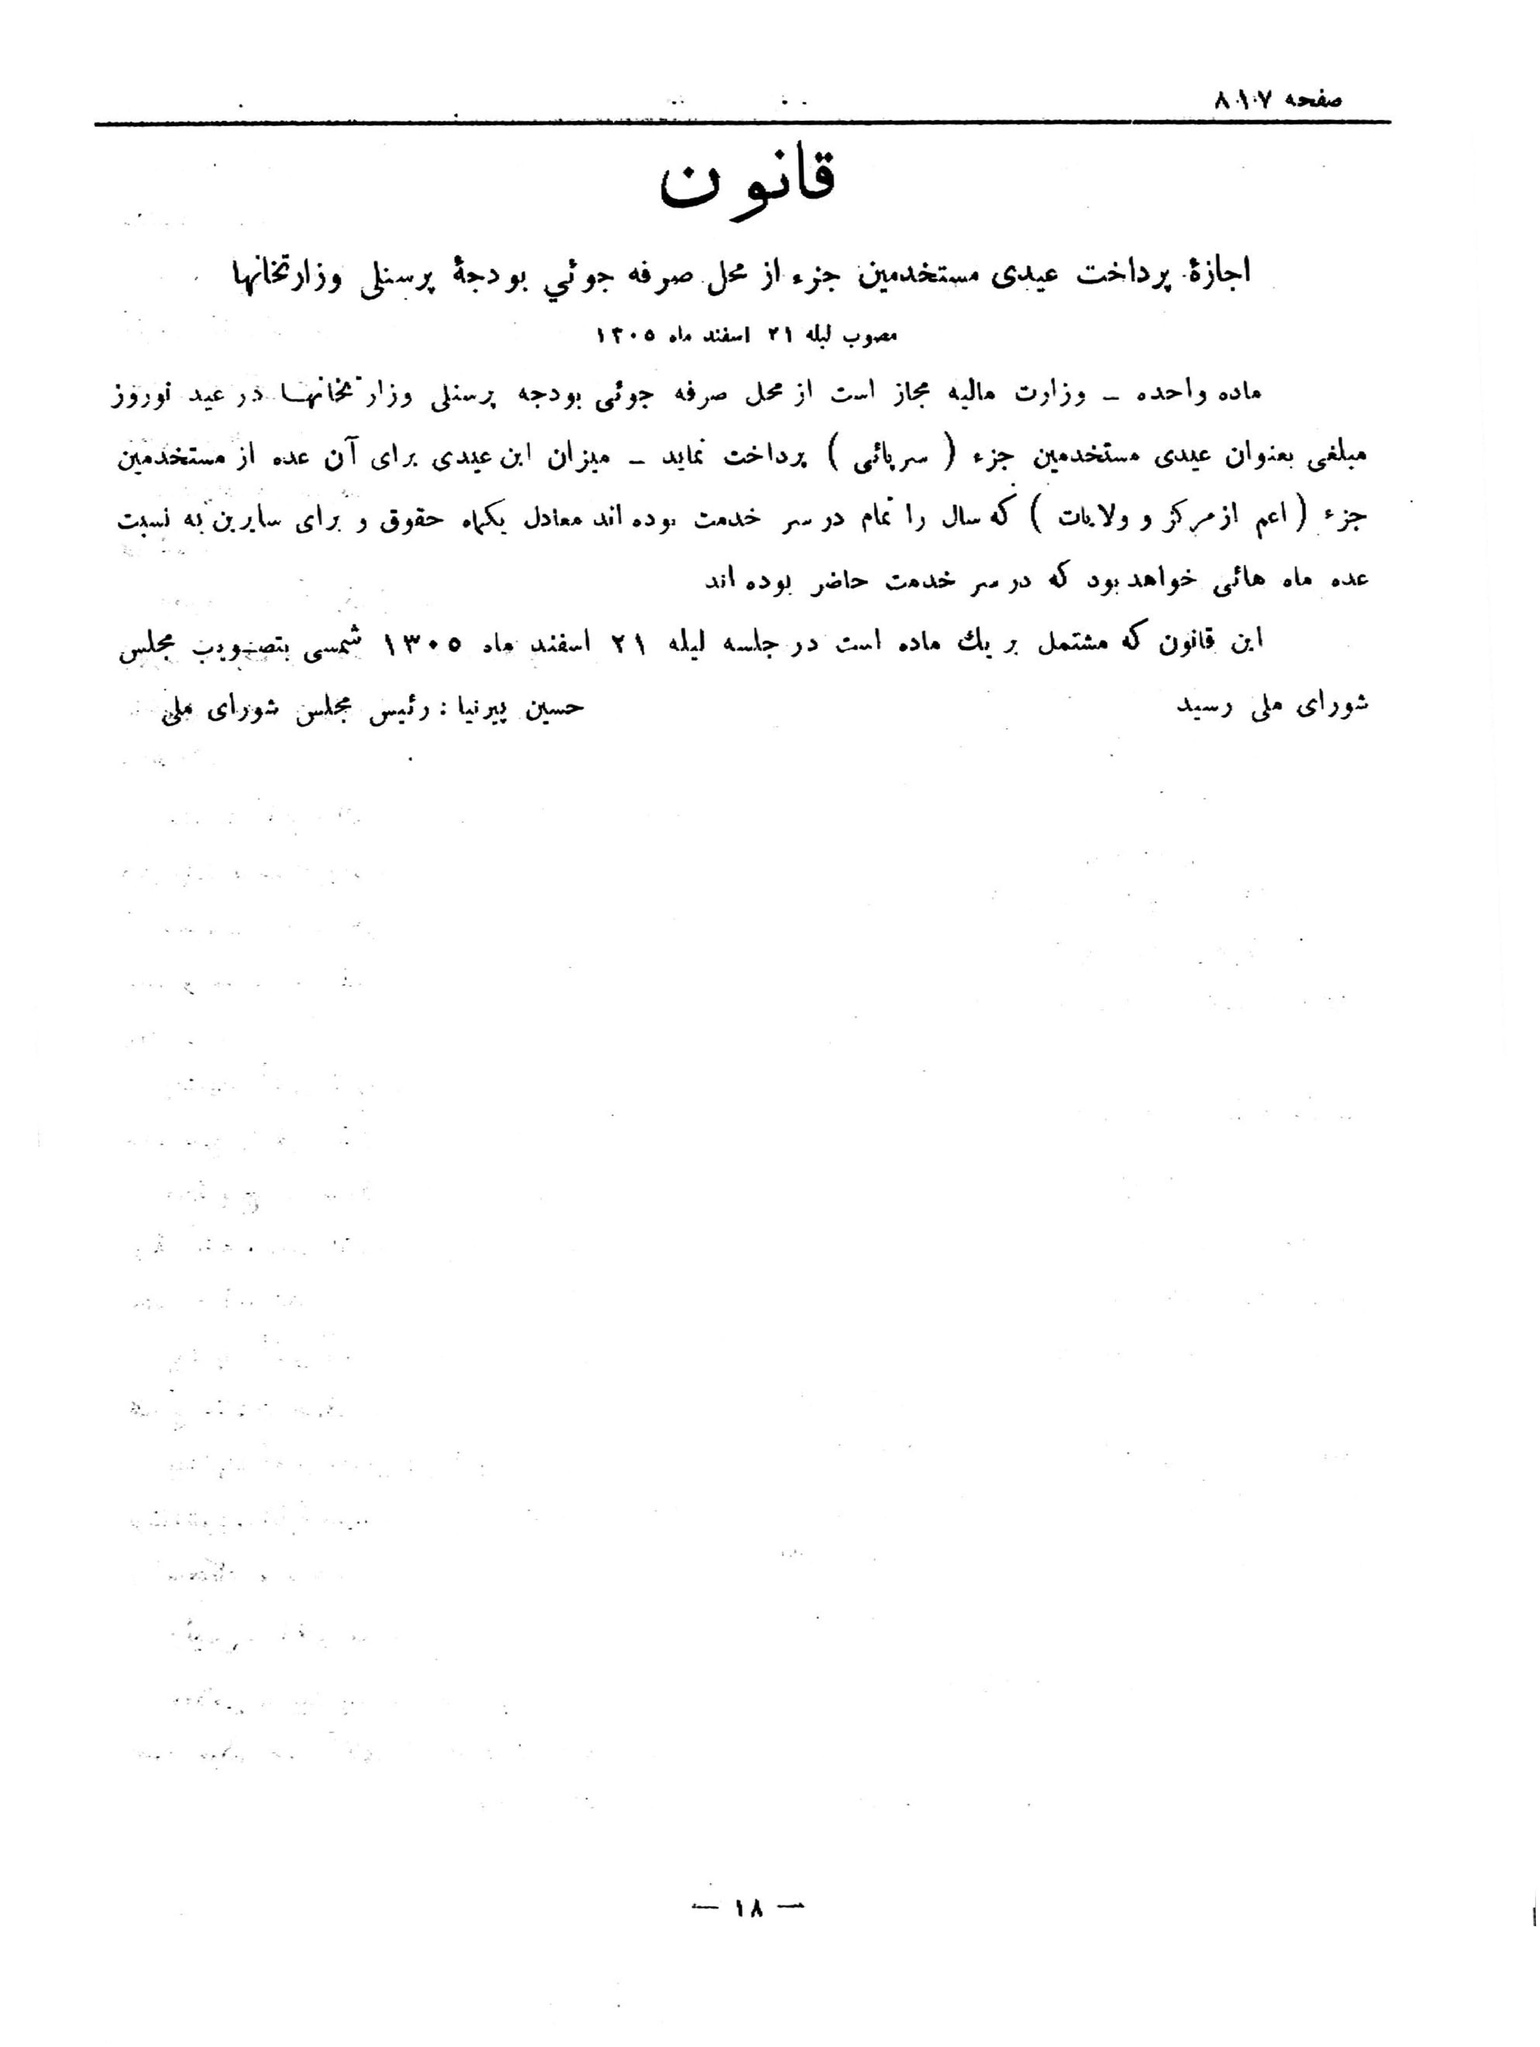 صفحه ۸۰۱۰۷
قانون
اجازهٔ پرداخت عیدی مستخدمین جزء از محل صرفه جوئي بودجهٔ پرسنلی وزارتخانها
مصوب لیله ۲۱ اسفند ماه ۱۳۰۵
ماده واحده ـ وزارت مالیه مجاز است از محل صرفه جوئی بودجه پرسنلی وزارتخانهـا در عید نوروز
مبلغی بعنوان عیدی مستخدمین جزء ( سرپائی ) پرداخت نماید ـ میزان این عیدی برای آن عده از مستخدمین
جزء ( اعم از مرکز و ولایات ) که سال را تمام در سر خدمت بوده اند معادل یکماه حقوق و برای سایرین به نسبت
عده ماه هائی خواهد بود که در سر خدمت حاضر بوده اند
این قانون که مشتمل بر یك ماده است در جلسه لیله ۲۱ اسفند ماه ۱۳۰۵ شمسی بتصویب مجلس
شورای ملی رسید حسین پیرنیا : رئیس مجلس شورای ملی
— ۱۸ —